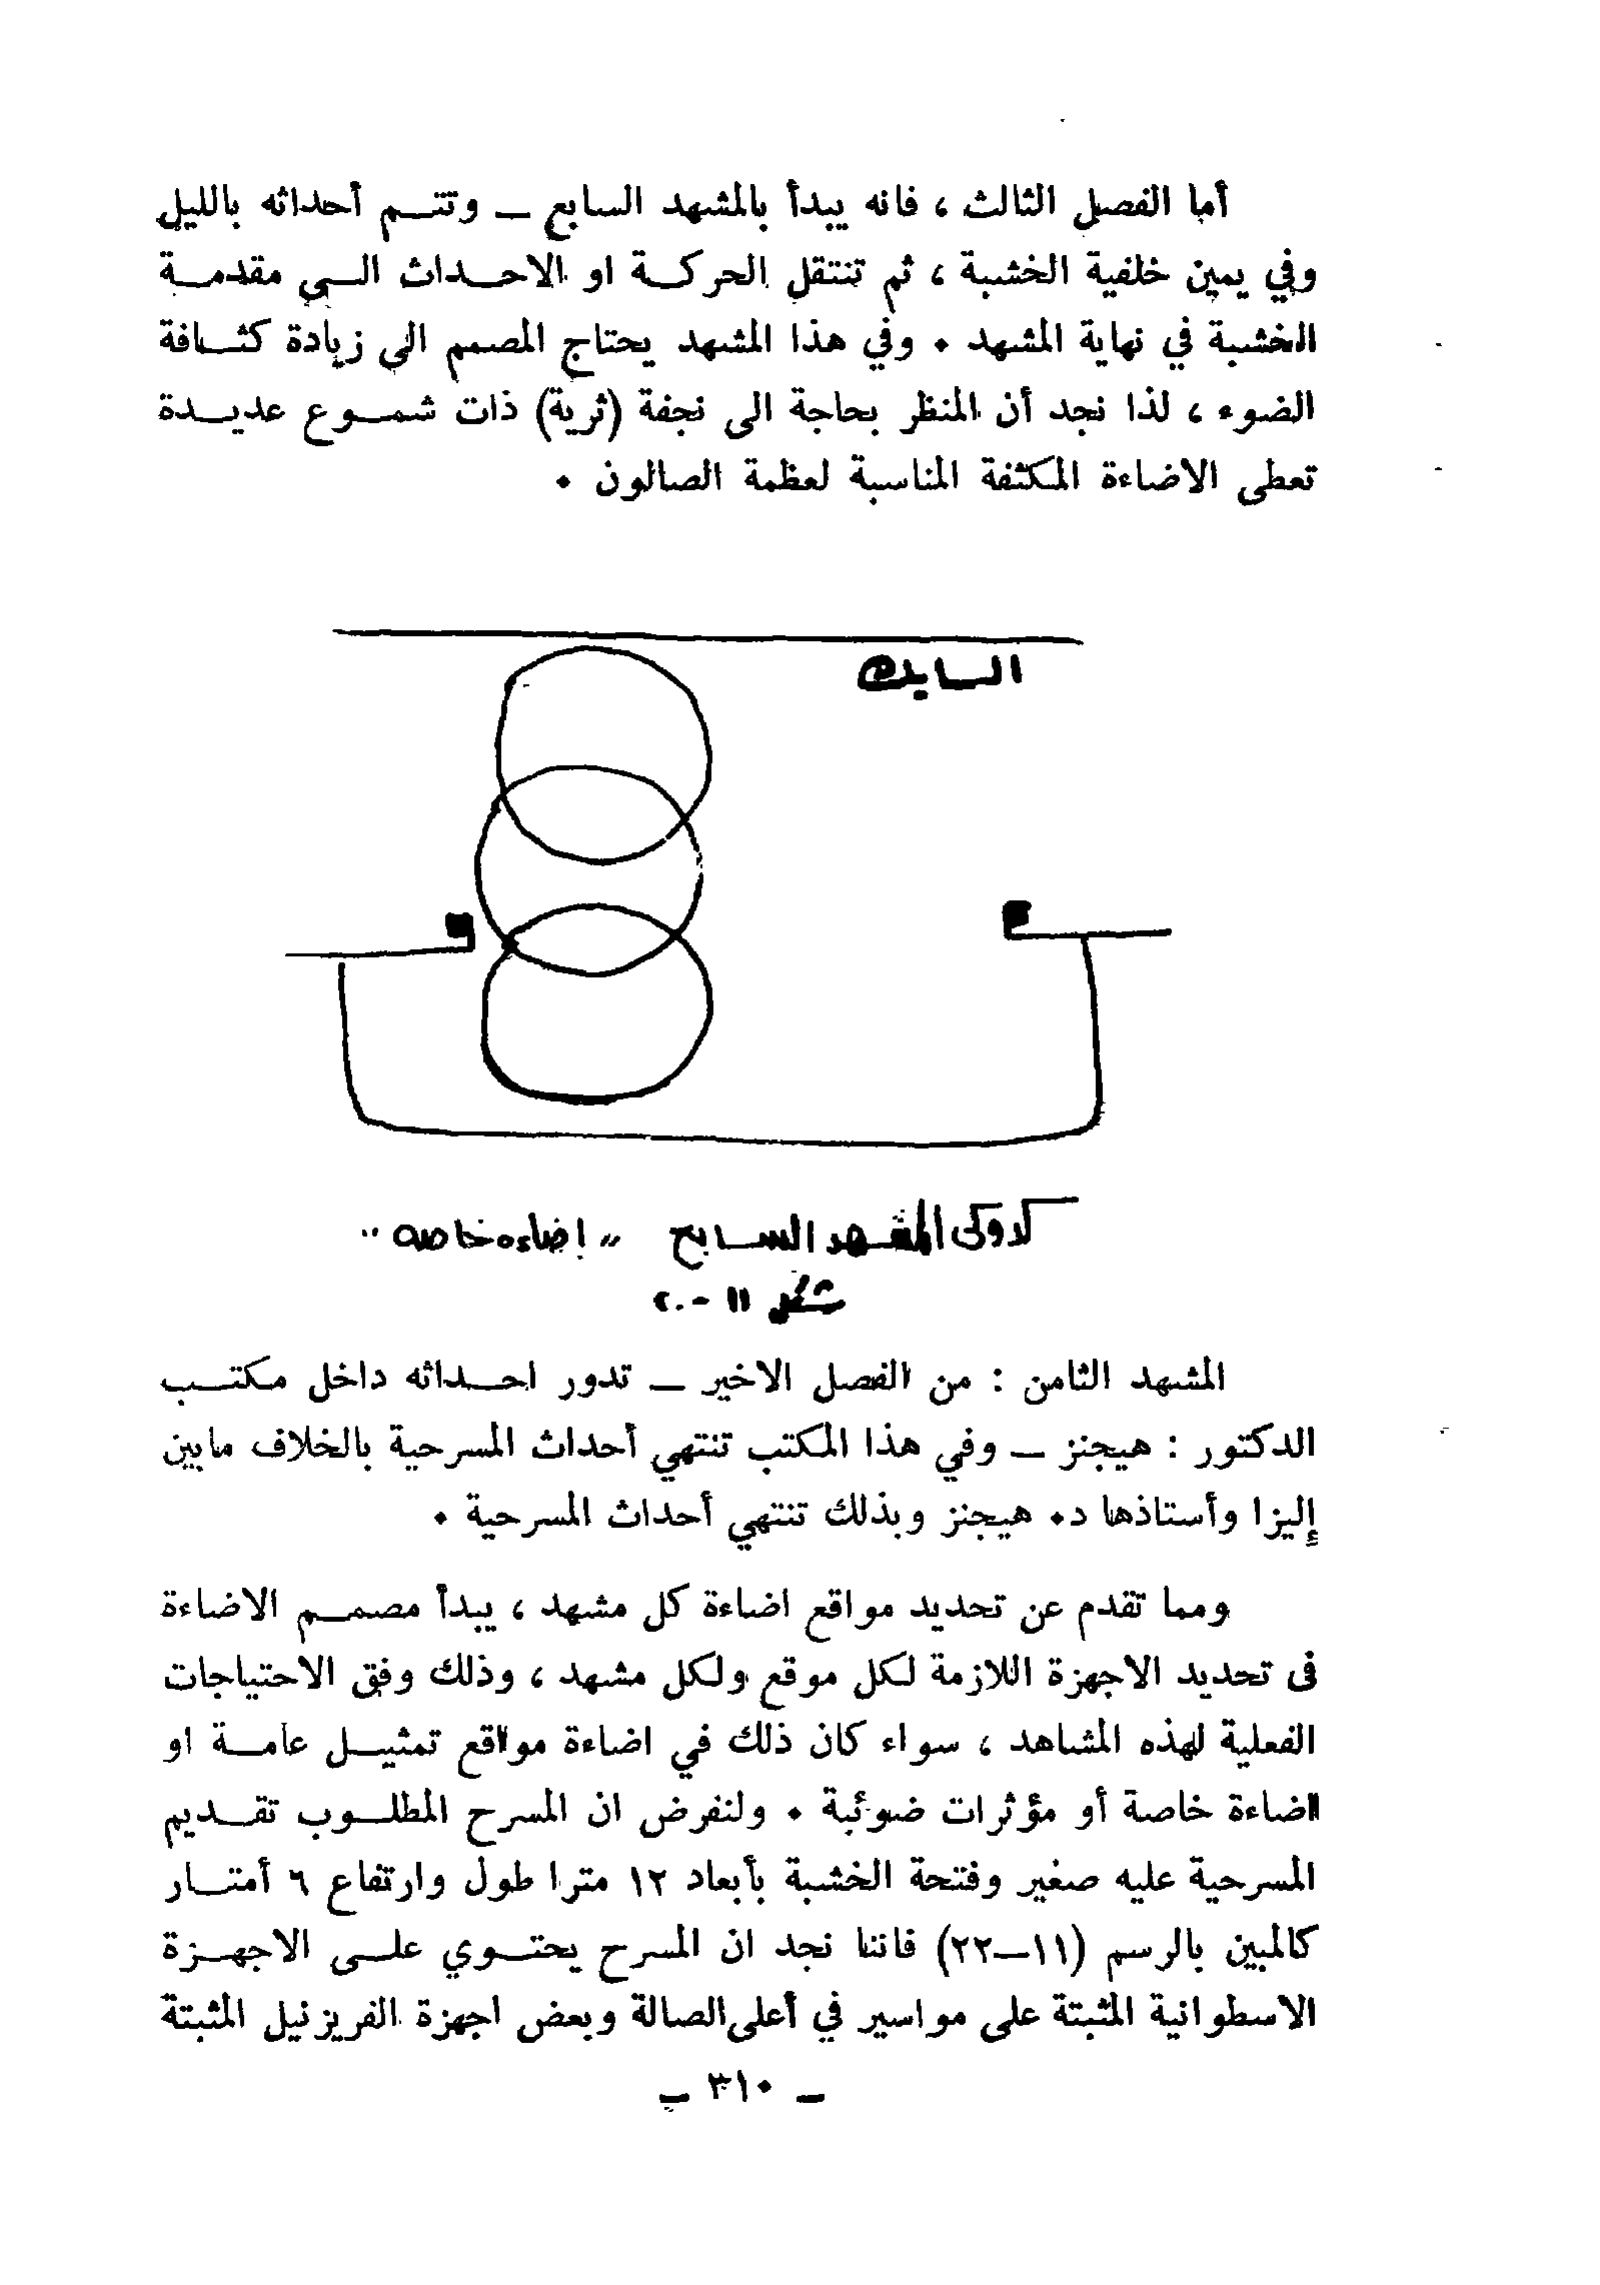 أما الفصل الثالث ، فانه يبدأ بالمشهد السابع ــ وتتم أحداثه بالليل
وفي يمين خلفية الخشبة ، ثم تنتقل الحركة او الاحداث الى مقدمة
الخشبة في نهاية المشهد ٠ وفي هذا المشهد يحتاج المصمم الى زيادة كثافة
الضوء ، لذا نجد أن المنظر بحاجة الى نجفة (ثرية) ذات شموع عديدة
تعطى الاضاءة المكثفة المناسبة لعظمة الصالون ٠
السايك
المشهد السابع " إضاءه خاصه "
شكل ١١ - ٢٠
المشهد الثامن : من الفصل الاخير ــ تدور احداثه داخل مكتب
الدكتور : هيجنز ــ وفي هذا المكتب تنتهي أحداث المسرحية بالخلاف مابين
إليزا وأستاذها د٠ هيجنز وبذلك تنتهي أحداث المسرحية ٠
ومما تقدم عن تحديد مواقع اضاءة كل مشهد ، يبدأ مصمم الاضاءة
فى تحديد الاجهزة اللازمة لكل موقع ولكل مشهد ، وذلك وفق الاحتياجات
الفعلية لهذه المشاهد ، سواء كان ذلك في اضاءة مواقع تمثيل عامة او
اضاءة خاصة أو مؤثرات ضوئية ٠ ولنفرض ان المسرح المطلوب تقديم
المسرحية عليه صغير وفتحة الخشبة بأبعاد ١٢ مترا طول وارتفاع ٦ أمتار
كالمبين بالرسم (١١ــ٢٢) فاننا نجد ان المسرح يحتوي على الاجهزة
الاسطوانية المثبتة على مواسير في أعلى الصالة وبعض اجهزة الفريزنيل المثبتة
ــ ٣١٠ ــ